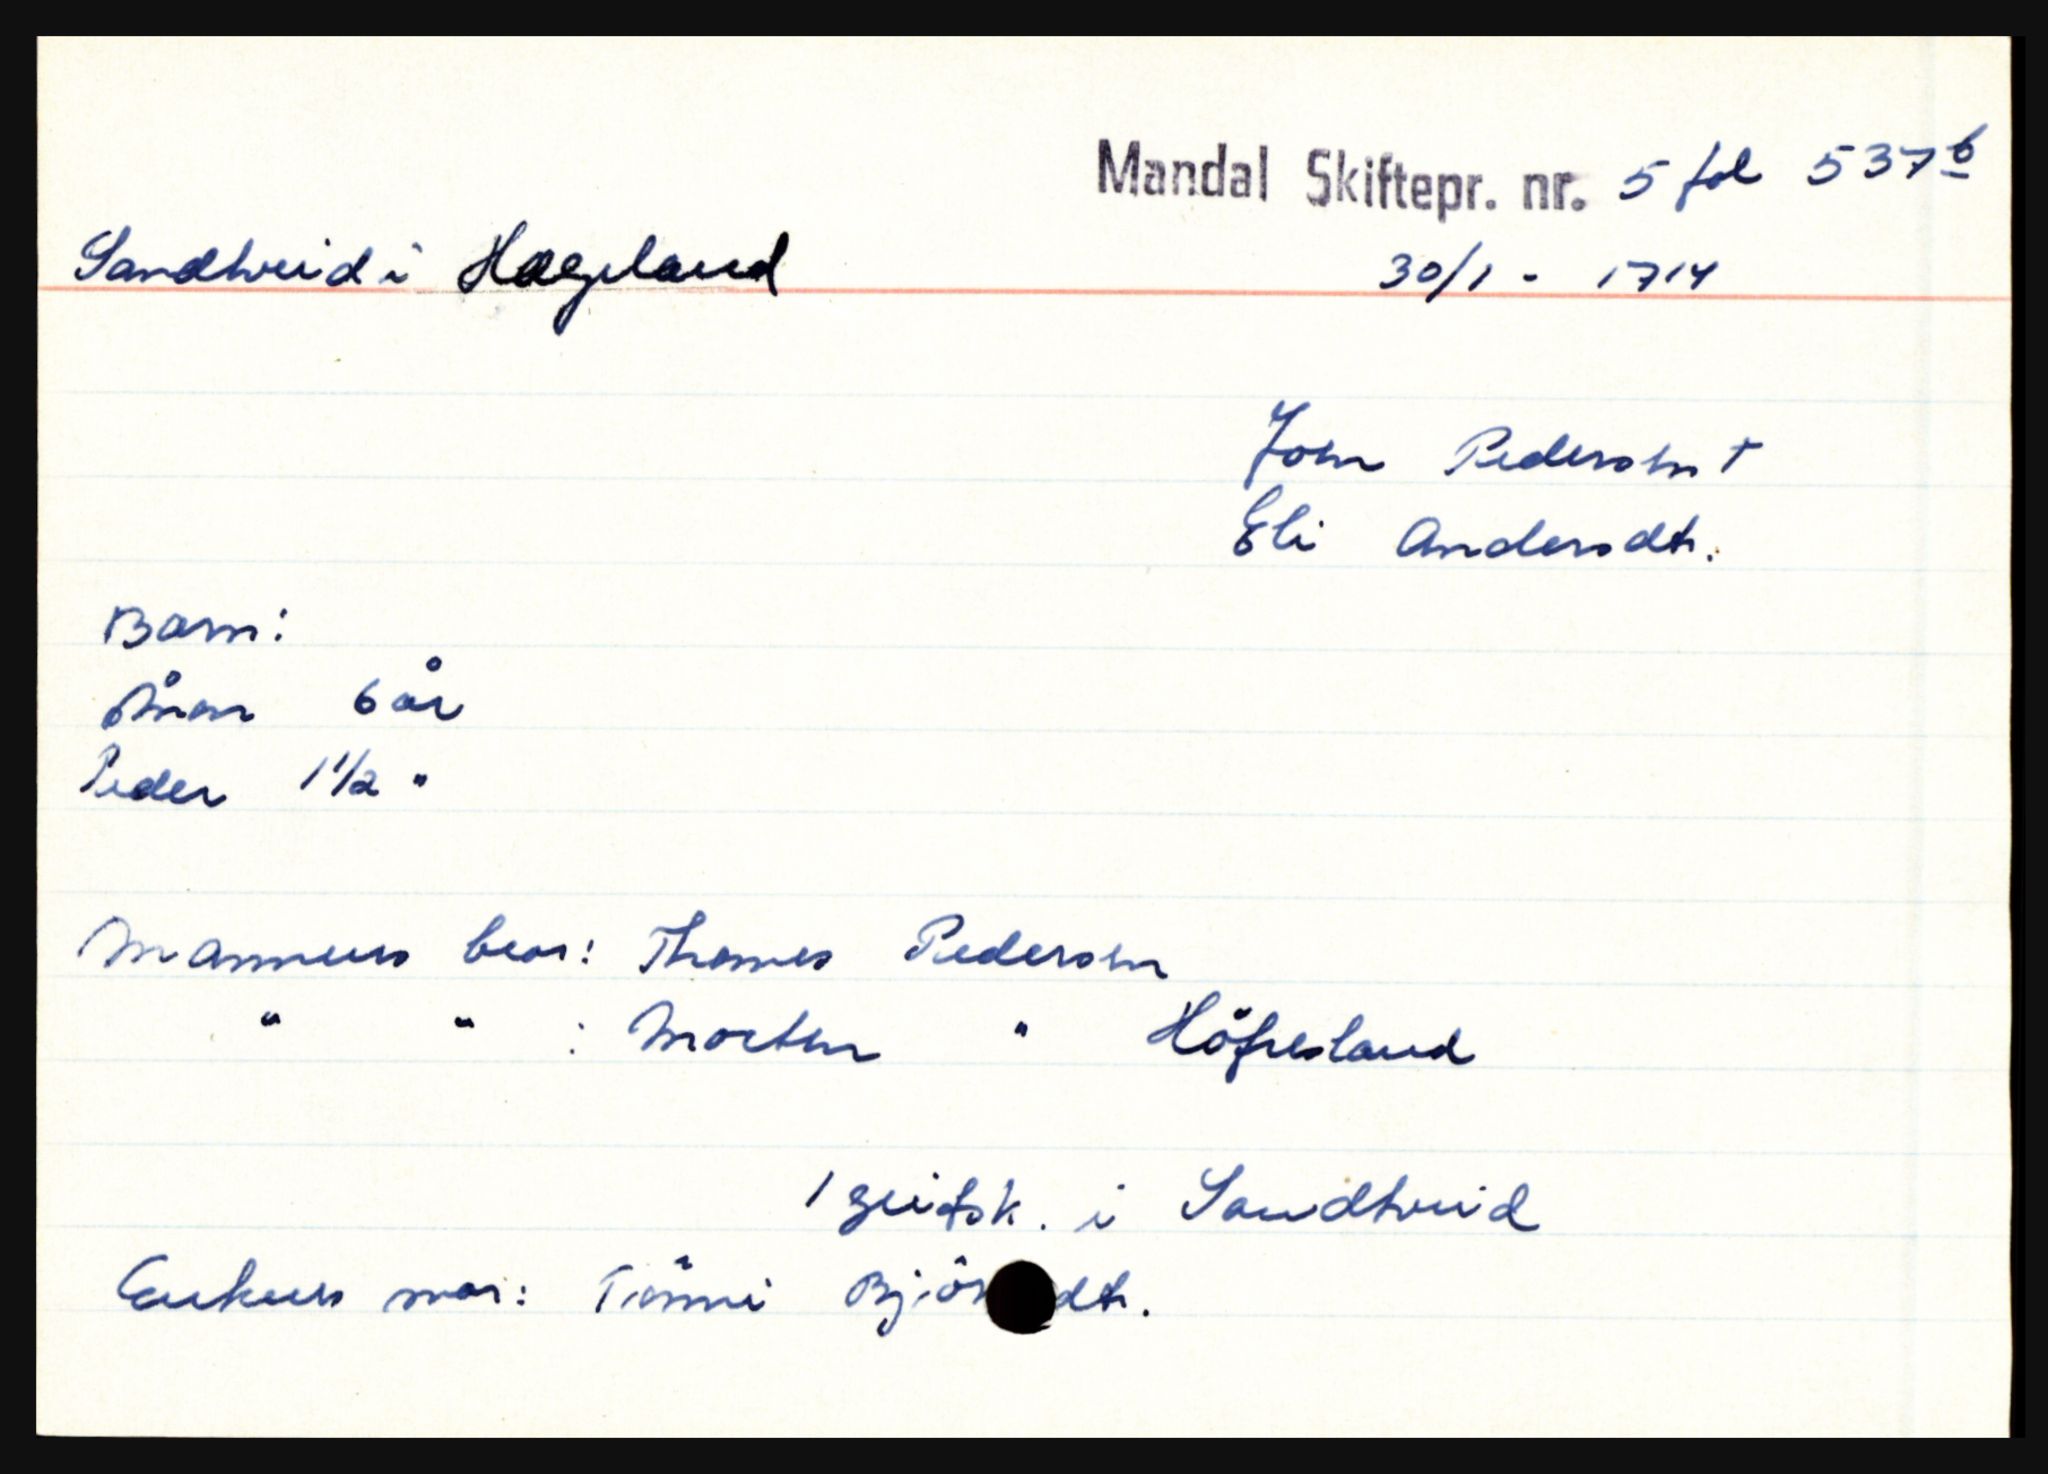 Mandal Skiftepr. nr. 5 fol 537b
Sandtveid i Hægeland 30/1 - 1714
John Pedersen †
Eli Andersdtr.
Barn:
Ånon 6 år
Peder 1 1/2 "
Mannens bror: Thomes Pedersen
" " : Morten " Höfresland
1 geitsk. i Sandtveid
Enkens mor: Tönni Bjö dtr.